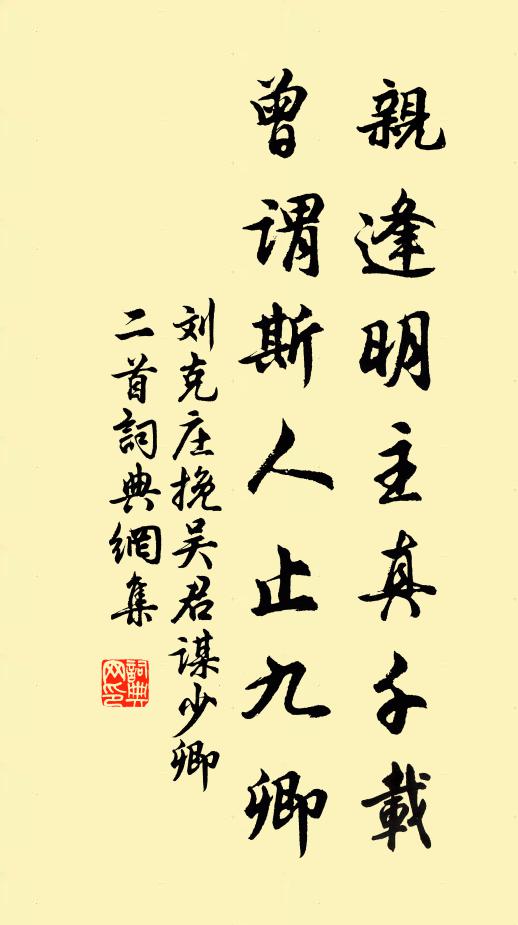 親逢明主真千載
曾谓斯人止九卿
刘克庄挽吴君谋少卿
二首詞典網集
詞典
网印